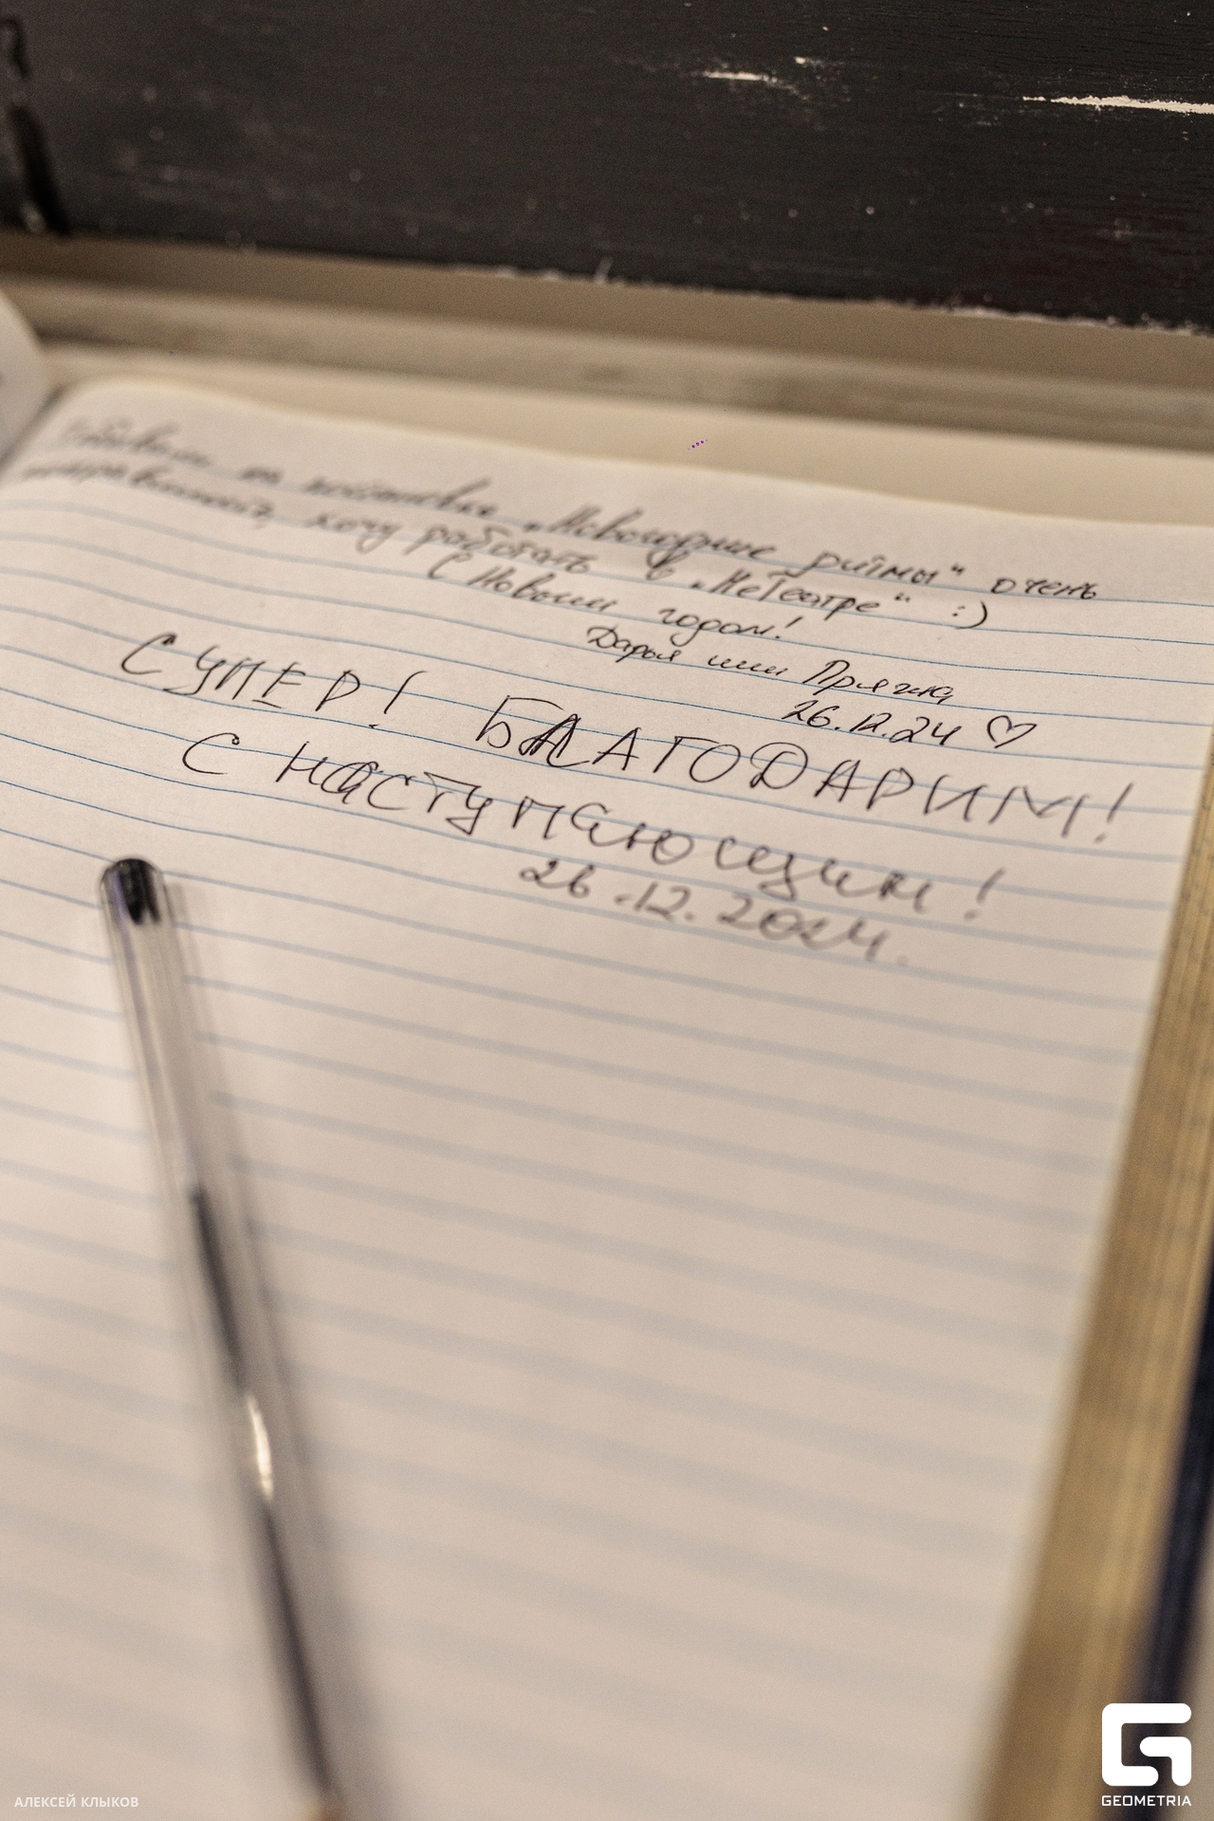 Побывали на постановке „Новогодние ритмы“ очень
понравилось, хочу работать в „НеТеатре“ :)
С Новым годом!
Дарья или Прягла
26.12.24 ♡
СУПЕР! БЛАГОДАРИМ!
С НАСТУПАЮЩИМ!
26.12.2024.
АЛЕКСЕЙ КЛЫКОВ
GEOMETRIA